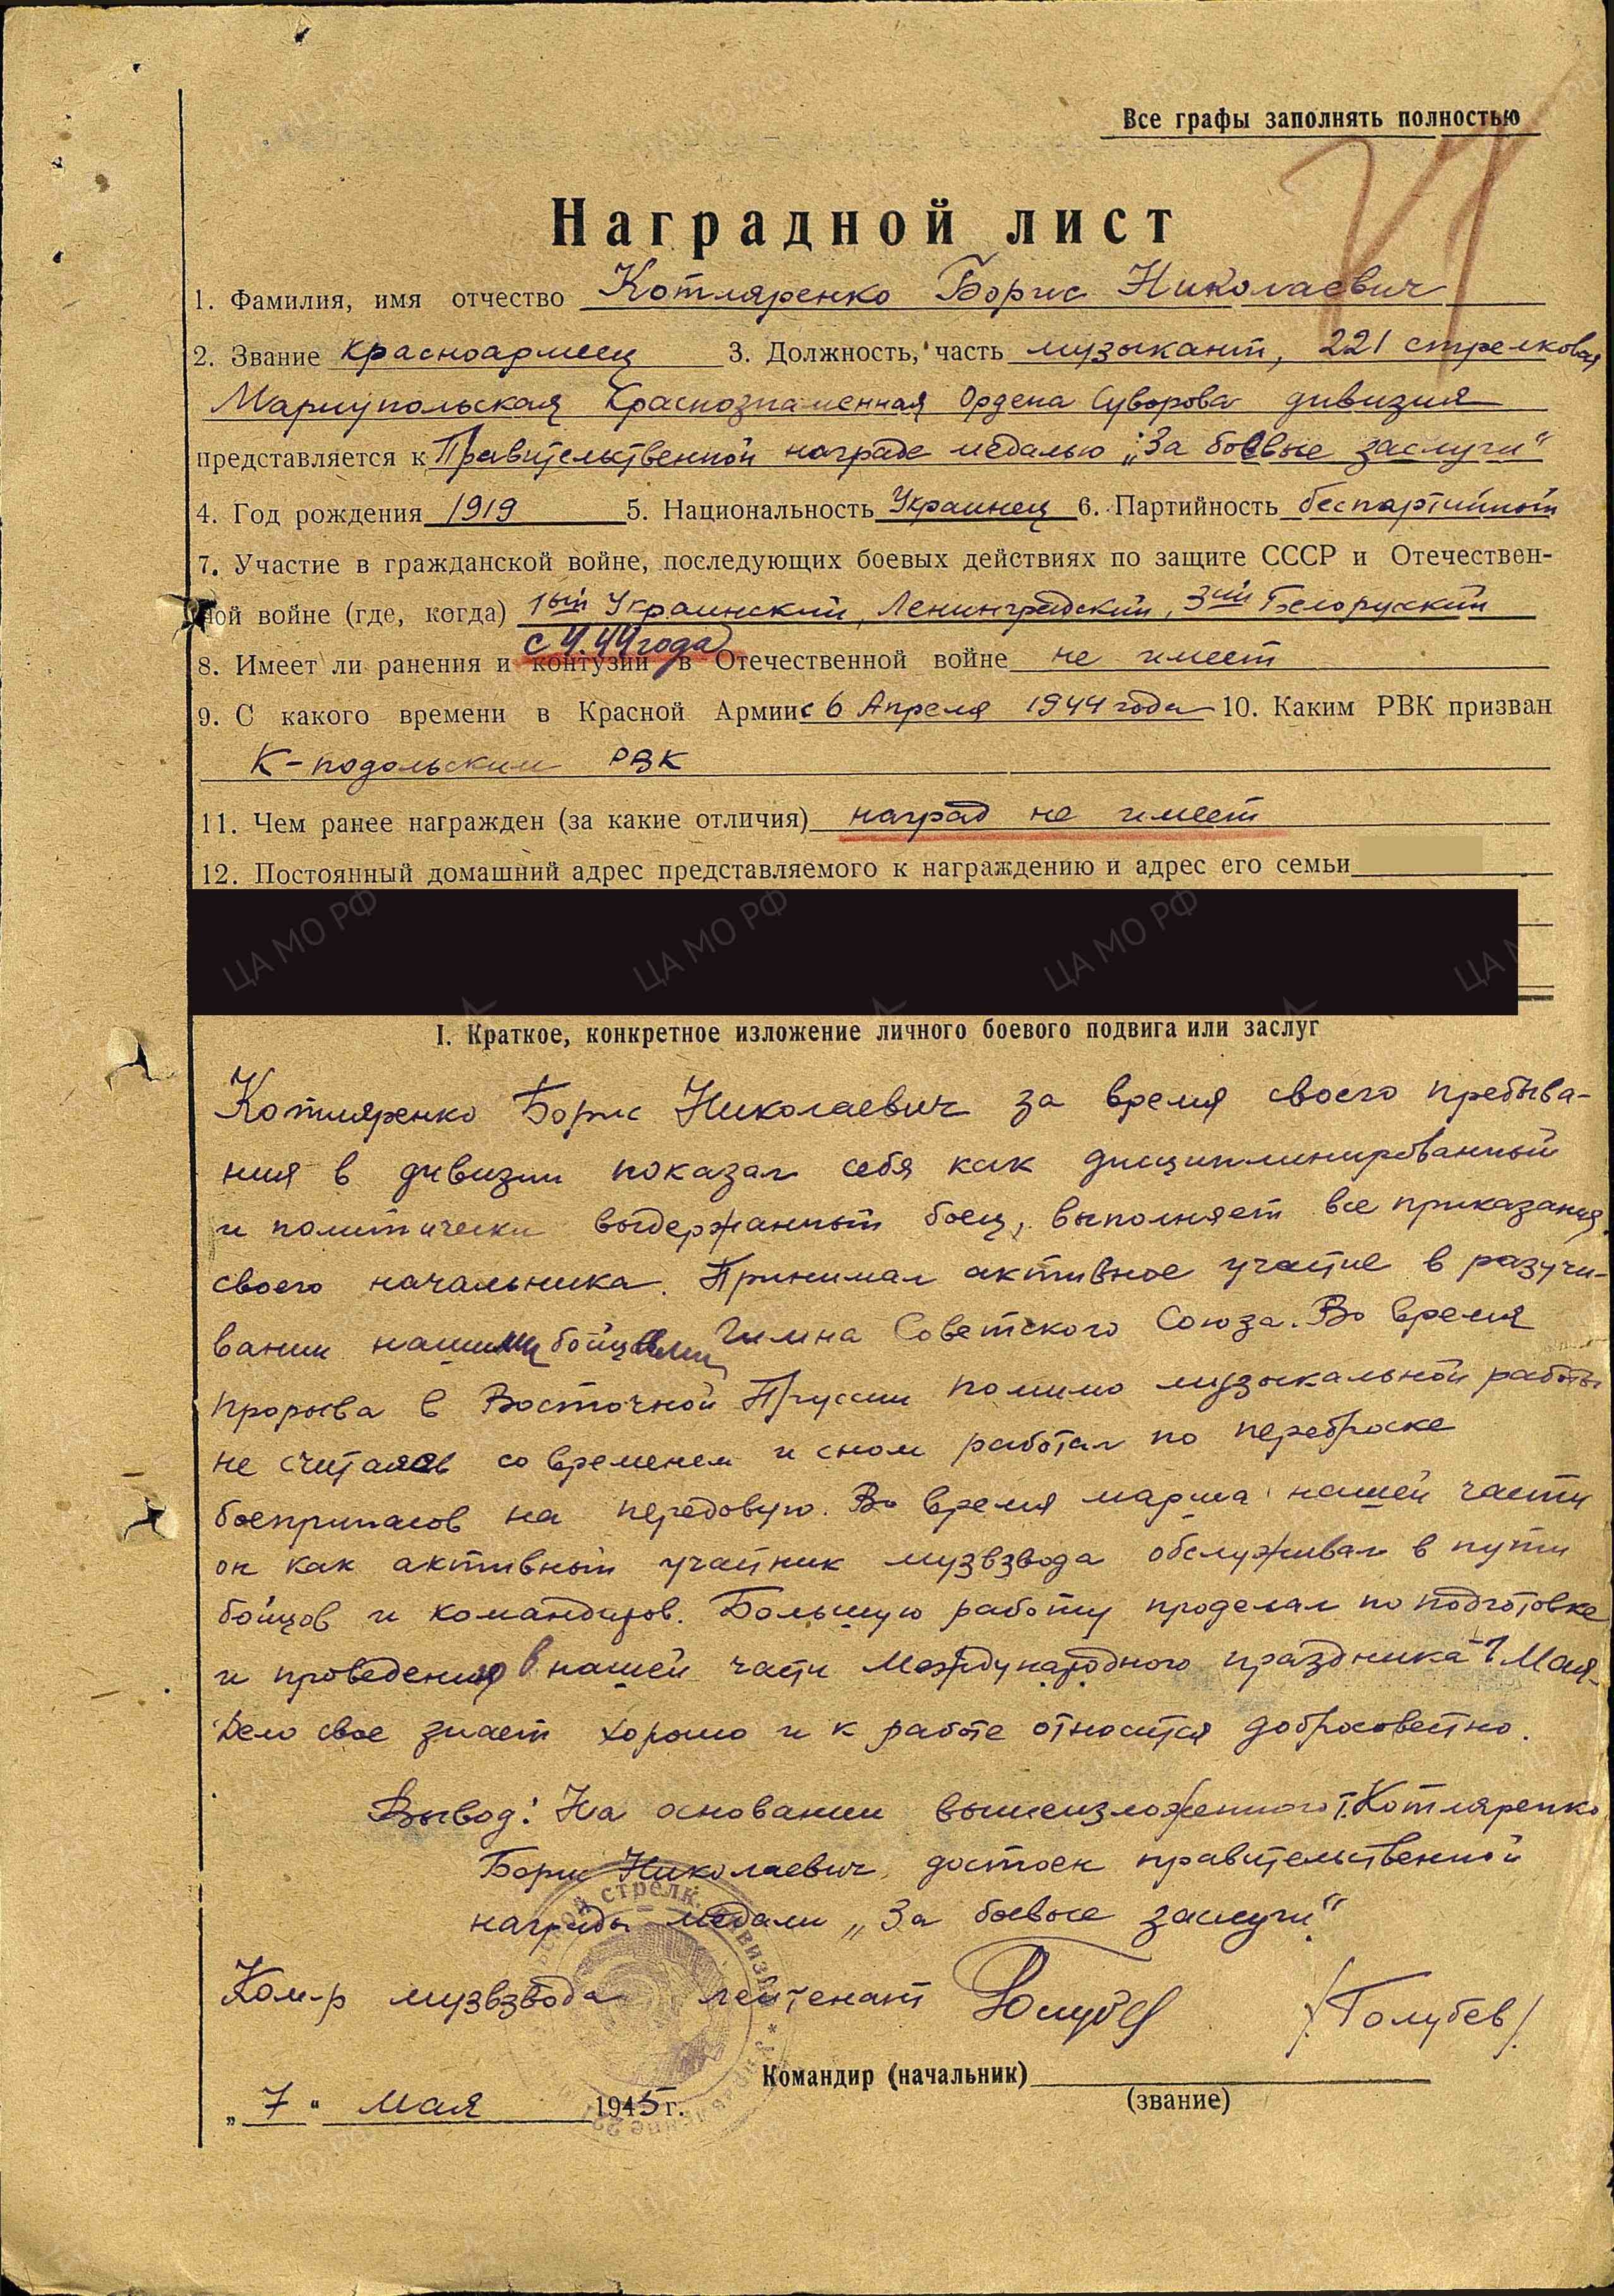 Все графы заполнять полностью
Наградной лист
1. Фамилия, имя отчество Котляренко Борис Николаевич
2. Звание красноармеец 3. Должность, часть музыкант, 221 стрелковая
Мариупольская Краснознаменная Ордена Суворова дивизия
представляется к Правительственной награде медалью „За боевые заслуги“
4. Год рождения 1919 5. Национальность Украинец 6. Партийность беспартийный
7. Участие в гражданской войне, последующих боевых действиях по защите СССР и Отечествен-
ной войне (где, когда) 1ый Украинский, Ленинградский, 3ий Белорусский
с 4.44 года
8. Имеет ли ранения и контузии в Отечественной войне не имеет
9. С какого времени в Красной Армии с 6 Апреля 1944 года 10. Каким РВК призван
К-подольским РВК
11. Чем ранее награжден (за какие отличия) наград не имеет
12. Постоянный домашний адрес представляемого к награждению и адрес его семьи
I. Краткое, конкретное изложение личного боевого подвига или заслуг
Котляренко Борис Николаевич за время своего пребыва-
ния в дивизии показал себя как дисциплинированный
и политически выдержанный боец, выполняет все приказания
своего начальника. Принимал активное участие в разучи-
вании нашими бойцами Гимна Советского Союза. Во время
прорыва в Восточной Пруссии помимо музыкальной работы
не считаясь со временем и сном работал по переброске
боеприпасов на передовую. Во время марша нашей части
он как активный участник музвзвода обслуживал в пути
бойцов и командиров. Большую работу проделал по подготовке
и проведению в нашей части Международного праздника 1 Мая.
Дело свое знает хорошо и к работе относится добросовестно.
Вывод: На основании вышеизложенного т. Котляренко
Борис Николаевич достоен правительственной
награды медали „За боевые заслуги“.
Ком-р музвзвода лейтенант Голубев /Голубев/
Командир (начальник)
(звание)
„7“ мая 1945 г.
ЦА МО РФ